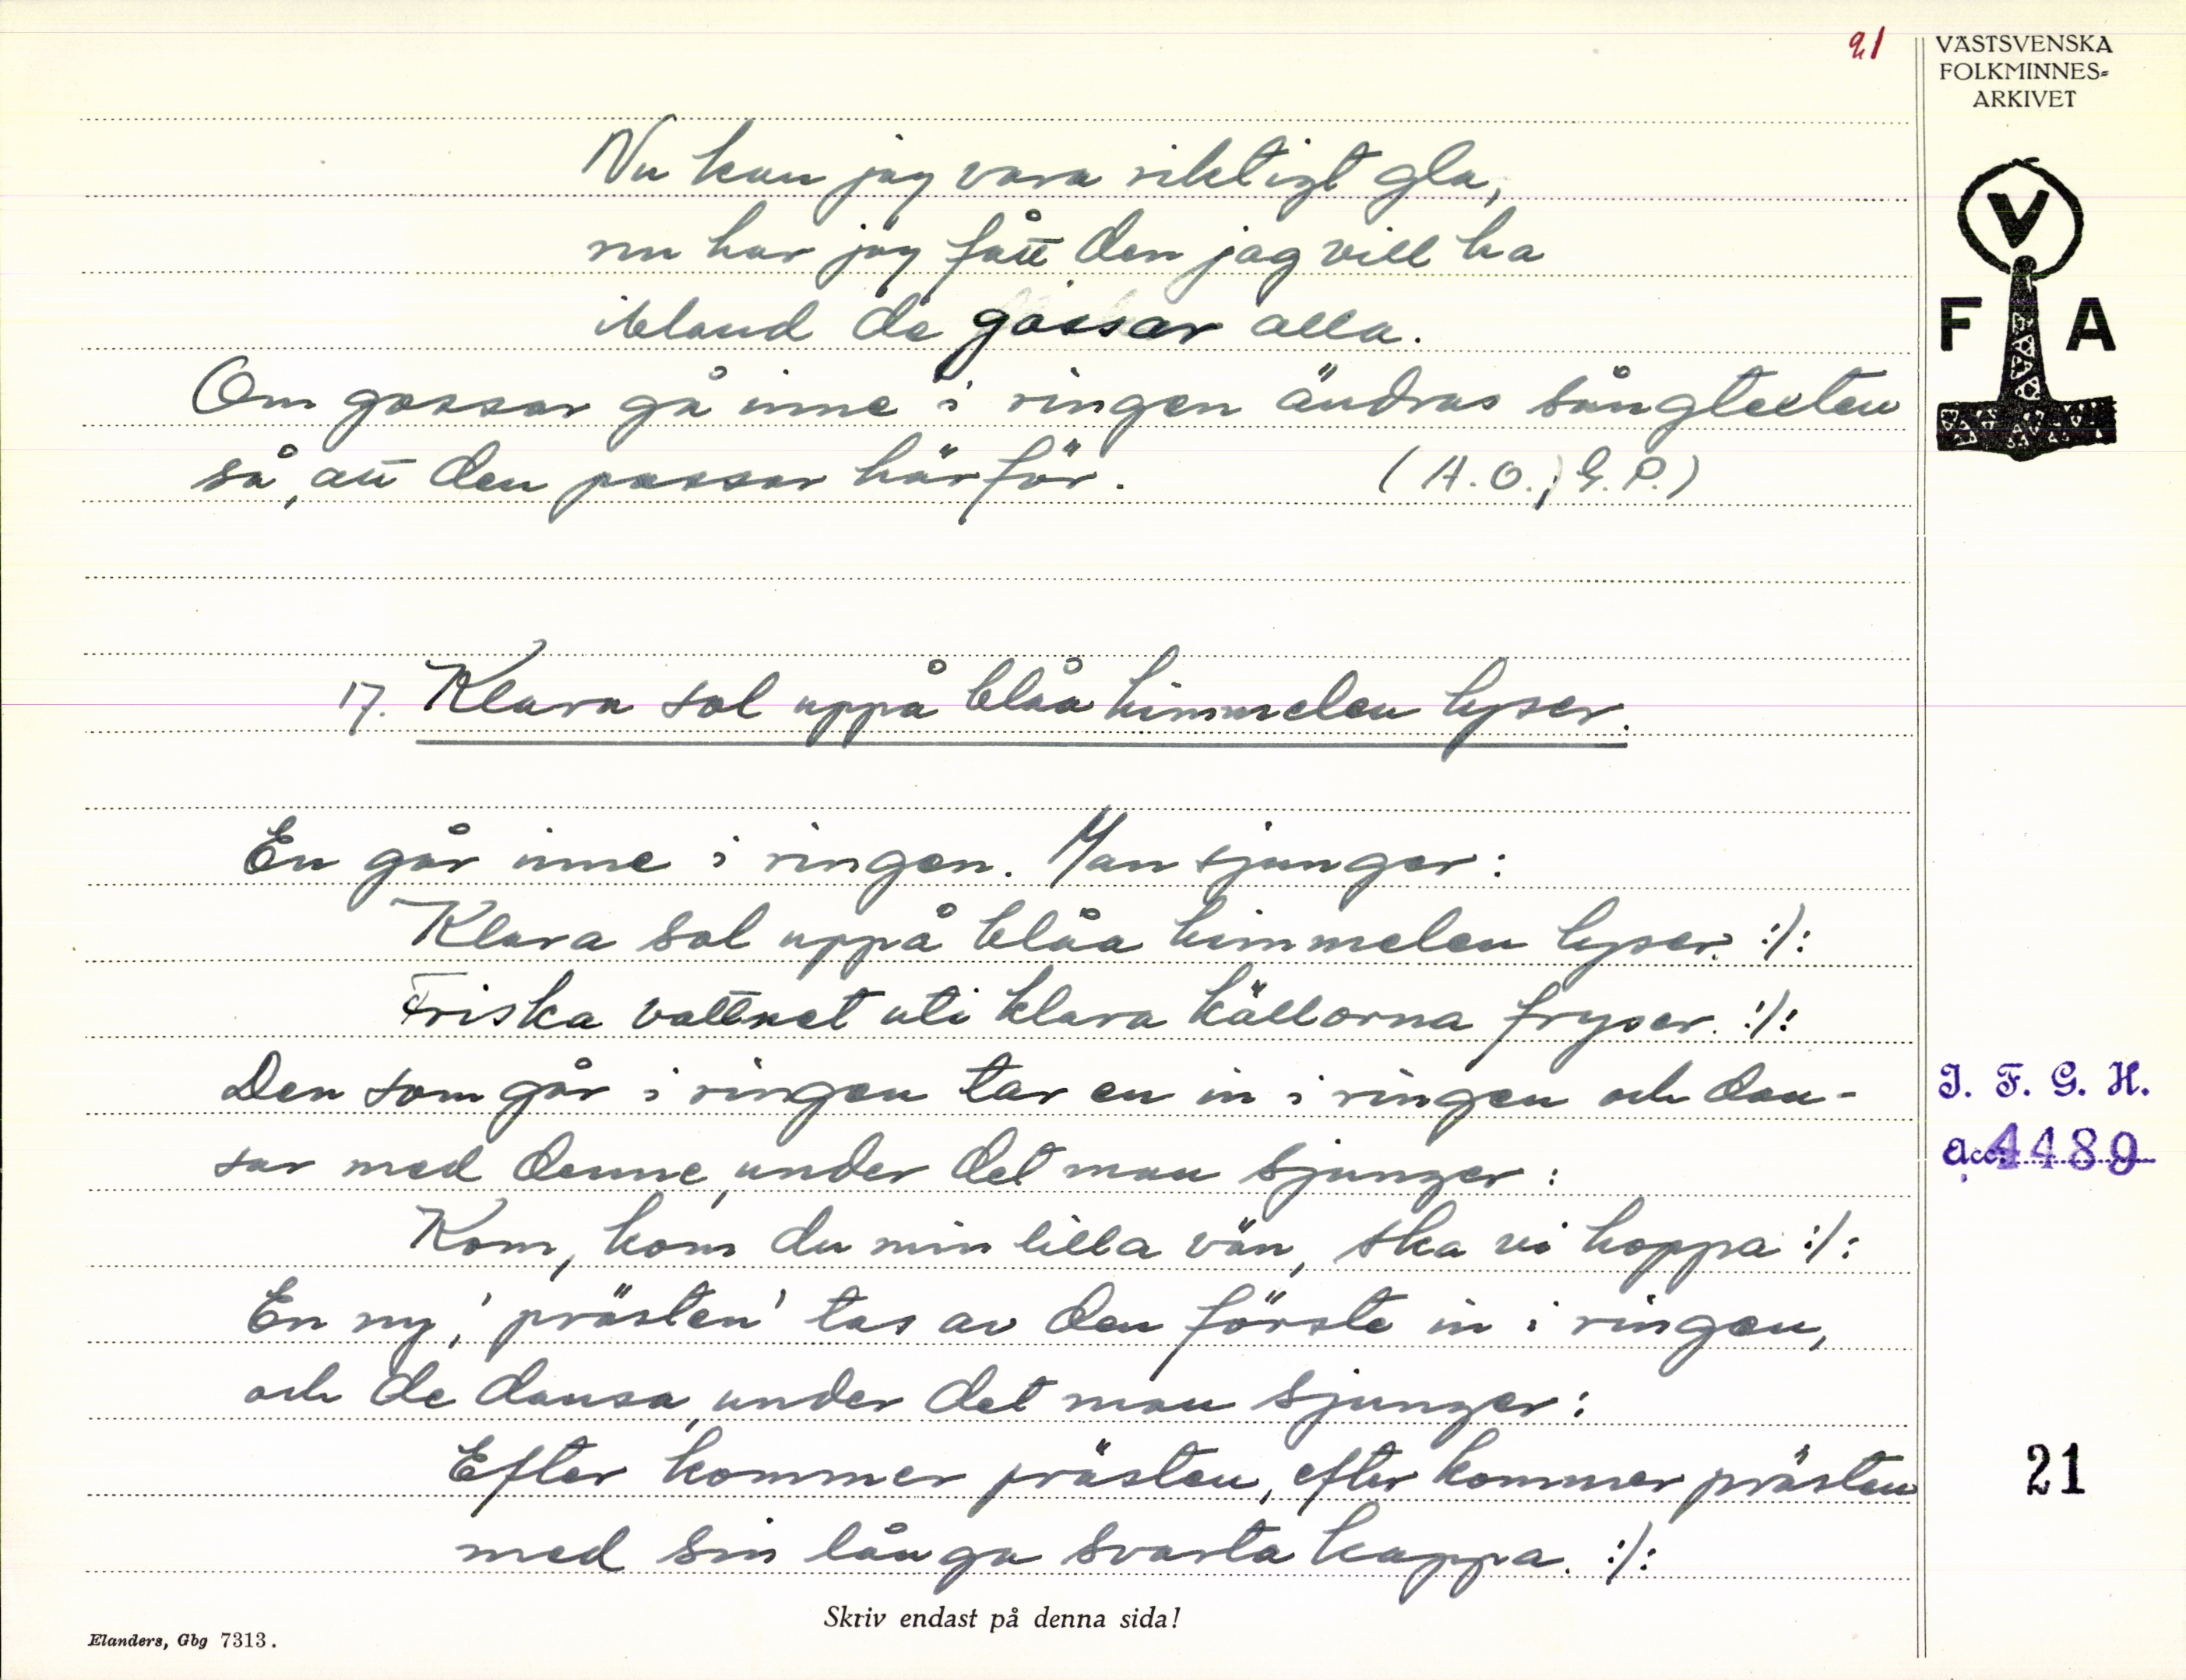 21
VÄSTSVENSKA
FOLKMINNES-
ARKIVET
V
F A
Nu kan jag vara riktigt gla,
nu har jag fått den jag vill ha
ibland de gossar alla.
Om gossar gå inne i ringen ändras sångtexten
så, att den passar härför. (A.O., G.P.)
17. Klara sol uppå blåa himmelen lyser.
En går inne i ringen. Man sjunger:
Klara sol uppå blåa himmelen lyser. :/:
Friska vattnet uti klara källorna fryser. :/:
Den som går i ringen tar en in i ringen och dan-
sar med denne, under det man sjunger:
Kom, kom du min lilla vän, ska vi hoppa :/:
En ny, 'prästen' tas av den förste in i ringen,
och de dansa, under det man sjunger:
Efter kommer prästen, efter kommer prästen
med sin långa svarta kappa. :/:
I. F. G. H.
Acc. 4489
21
Skriv endast på denna sida!
Elanders, Gbg 7313.